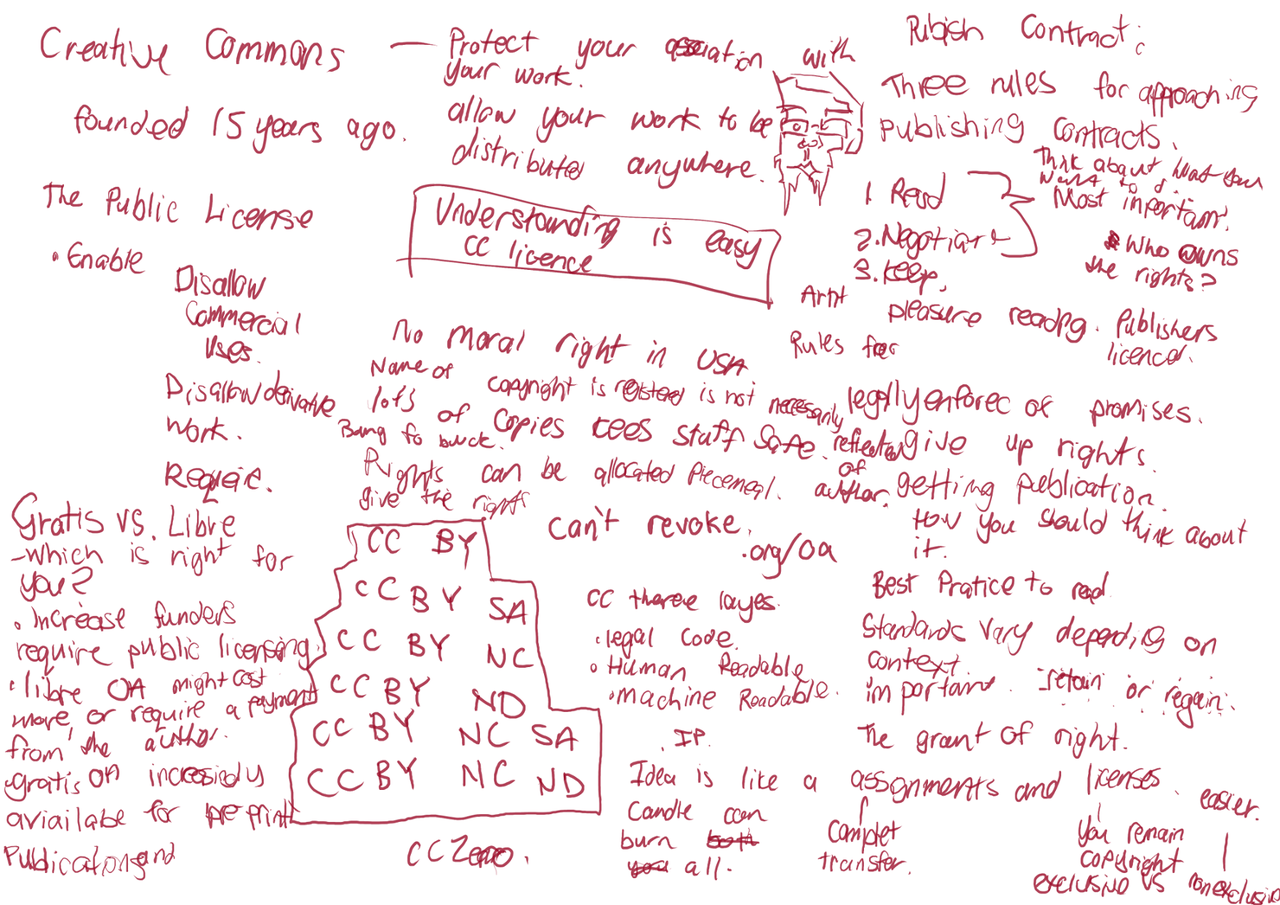 Creative Commons — Protect your assuation with
your work.
founded 15 years ago.
allow your work to be
distributed anywhere.
The Public License
• Enable
Disallow
Commercial
Uses.
Disallow derivative
work.
Require.
Understanding is easy
CC licence
No moral right in USA
Name of copyright is registered is not necessarily
reflected
of
author.
lots of copies kees staff safe.
Bang fo buck.
Rights can be allocated Piecemeal.
give the rights
can't revoke.
.org/oa
Gratis vs. Libre
-which is right for
you?
• Increase funders
require public licensing
• libre OA might cost
more or require a payment
from the author.
• gratis OA increasidy
aviailabe for preprint
Publication and
CC BY
CC BY SA
CC BY NC
CC BY ND
CC BY NC SA
CC BY NC ND
CC Zero.
CC theree layes.
• legal code.
• Human Readable
• machine Readable.
. IP.
Idea is like a
Candle can
burn both
you all.
Rubish Contract:
Three rules for approaching
publishing contracts.
1. Read
2. Negotiate
3. keep.
Think about what you
want to d.
Most important.
Who owns
the rights?
pleasure readng. Publishers
licenced.
Rules for
legally enforec of promises.
give up rights.
getting publication.
How you should think about
it.
Best Pratice to read
Standards vary depending on
context.
important. retain or regain.
The grant of right.
assignments and licenses. easier.
complet
transfer.
you remain
copyright
exclusive vs nonexclusive